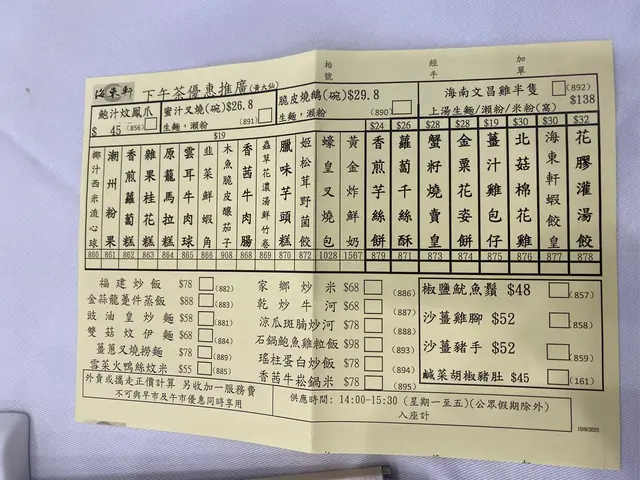 枱號
經手
加單
海東軒 下午茶優惠推廣(黃大仙)
鮑汁炆鳳爪 $45 (856)
蜜汁叉燒(碗)$26.8 生麵，瀨粉 (891)
脆皮燒鴿(碗)$29.8 生麵，瀨粉 (890)
海南文昌雞半隻 (892) $138
上湯生麵/瀨粉/米粉(窩)
$19
椰汁西米流心球 860
潮州粉果 861
香煎蘿蔔糕 862
雜果桂花糕 863
原籠馬拉糕 864
雲耳牛肉球 865
韭菜鮮蝦角 866
木魚脆皮釀茄子 908
香茜牛肉腸 868
蟲草花濃湯鮮竹卷 869
臘味芋頭糕 870
姬松茸野菌餃 872
蠔皇叉燒包 1028
黃金炸鮮奶 1567
$24 香煎芋絲餅 879
$26 蘿蔔千絲酥 871
$28 蟹籽燒賣皇 873
$28 金粟花姿餅 874
$28 薑汁雞包仔 875
$30 北菇棉花雞 876
$30 海東軒蝦餃皇 877
$32 花膠灌湯餃 878
福建炒飯 $78 (882)
金蒜龍躉件蒸飯 $88 (883)
豉油皇炒麵 $58 (881)
雙菇炆伊麵 $68 (884)
薑蔥叉燒撈麵 $78 (889)
雪菜火鴨絲炆米 $55 (885)
家鄉炒米 $68 (886)
乾炒牛河 $68 (887)
涼瓜斑腩炒河 $78 (888)
石鍋鮑魚雞粒飯 $98 (893)
瑤柱蛋白炒飯 $78 (894)
香茜牛崧鍋米 $78 (895)
椒鹽魷魚鬚 $48 (857)
沙薑雞腳 $52 (858)
沙薑豬手 $52 (859)
鹹菜胡椒豬肚 $45 (161)
外賣或攜走正價計算 另收加一服務費
不可與早市及午市優惠同時享用
供應時間: 14:00-15:30 (星期一至五)(公眾假期除外)
入座計
10/6/2025